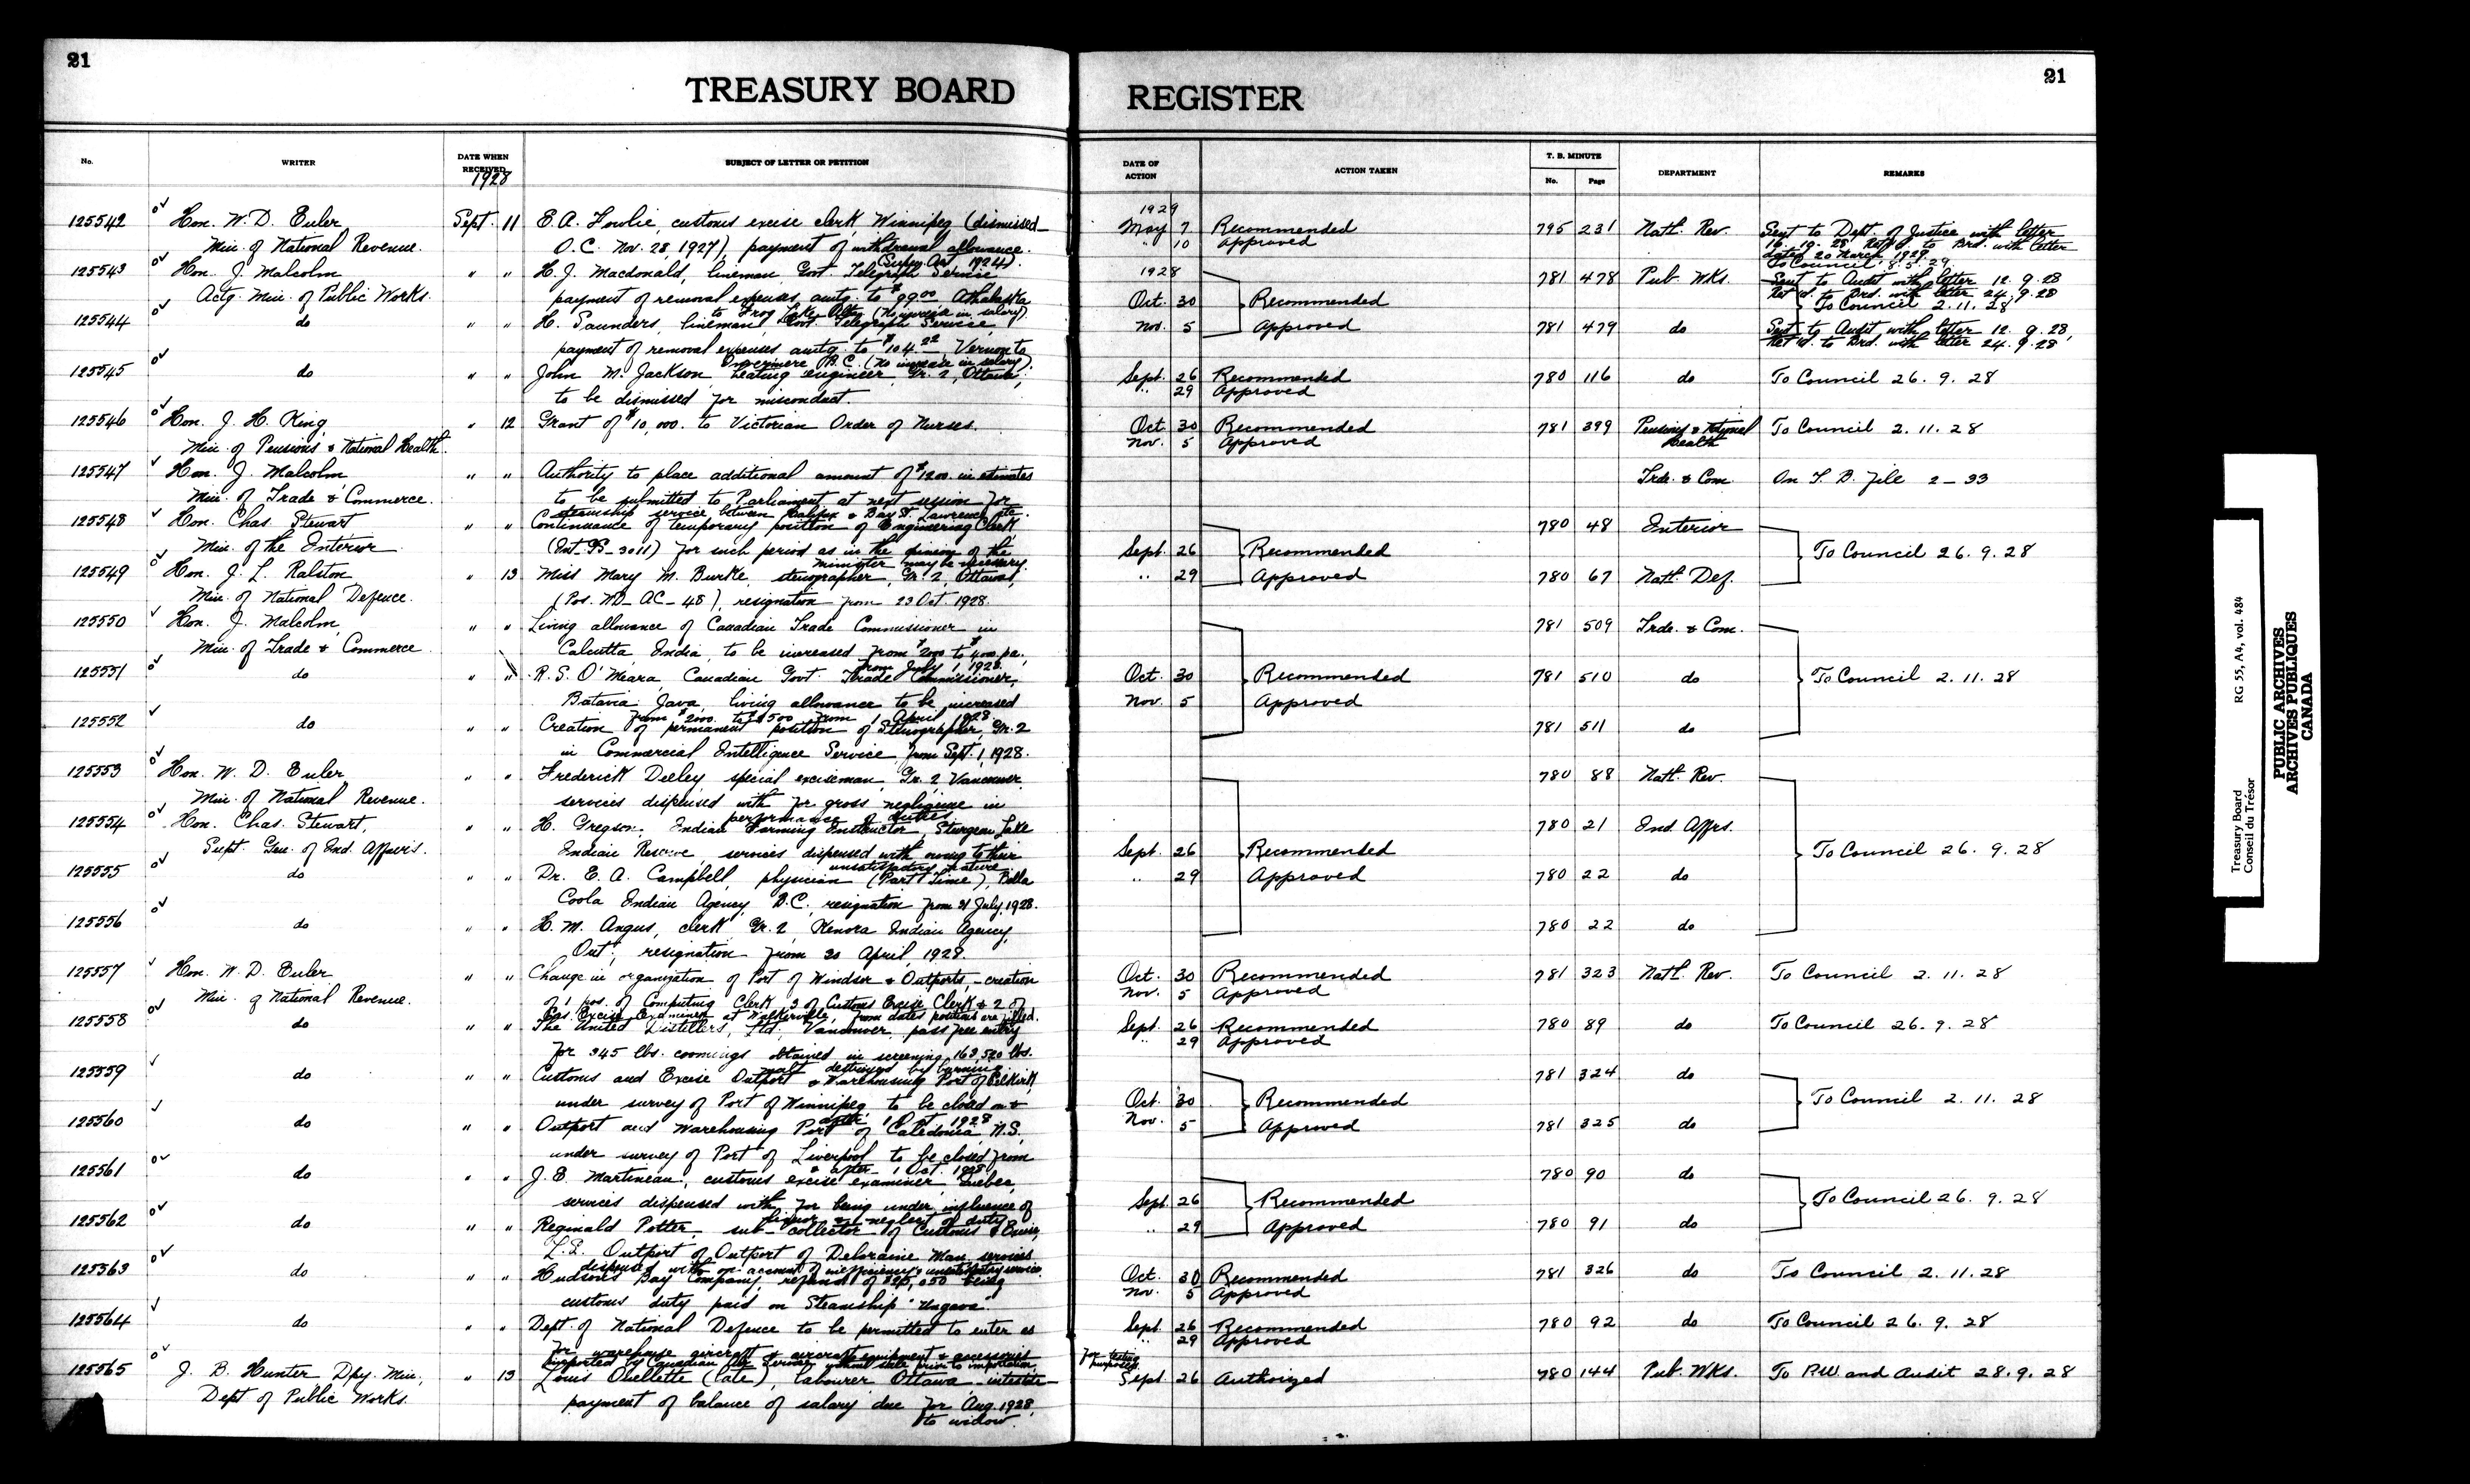 21
TREASURY BOARD
No.
WRITER
DATE WHEN RECEIVED
1928
SUBJECT OF LETTER OR PETITION
125542 Hon. W. D. Euler Sept. 11 E. A. Fowlie, customs excise clerk, Winnipeg (dismissed
Min. of National Revenue. O.C. Nov. 28, 1927), payment of withdrawal allowance.
(Super. Act 1924).
125543 Hon. J. Malcolm " " H. J. Macdonald, lineman Govt Telegraph Service
Actg. Min. of Public Works. payment of removal expenses amtg. to $99.00 Athabaska
to Frog Lake Alta (No increase in salary)
125544 do " " H. Saunders, lineman, Govt. Telegraph Service,
payment of removal expenses amtg. to $104.22 Vernon to
B.C. (No increase in salary).
125545 do " " John M. Jackson, heating engineer, Gr. 2, Ottawa,
to be dismissed for misconduct.
125546 Hon. J. H. King " 12 Grant of $10,000. to Victorian Order of Nurses.
Min. of Pensions & National Health.
125547 Hon. J. Malcolm " " Authority to place additional amount of $1200. in estimates
Min. of Trade & Commerce. to be submitted to Parliament at next session for
steamship service between Halifax & Bay St. Lawrence etc.
125548 Hon. Chas. Stewart " " Continuance of temporary position of Engineering Clerk
Min. of the Interior (Int. 3011) for such period as in the opinion of the
minister may be necessary.
125549 Hon. J. L. Ralston " 13 Miss Mary M. Burke, stenographer, Gr. 2, Ottawa,
Min. of National Defence. (Pos. ND-AC-48), resignation from 23 Oct. 1928.
125550 Hon. J. Malcolm " " Living allowance of Canadian Trade Commissioner in
Min. of Trade & Commerce Calcutta, India, to be increased from $2000 to $4000. pa.
from July 1 1928.
125551 do " " R. S. O'Meara, Canadian Govt. Trade Commissioner,
Batavia Java, living allowance to be increased
from $2000. to 1 April 1928.
125552 do " " Creation of permanent position of Stenographer, Gr. 2
in Commercial Intelligence Service from Sept. 1, 1928.
125553 Hon. W. D. Euler " " Frederick Deeley, special exciseman, Gr. 2, Vancouver
Min. of National Revenue. services dispensed with for gross negligence in
performance of duties
125554 Hon. Chas. Stewart, " " H. Gregson, Indian Farming Instructor, Sturgeon Lake
Supt. Gen. of Ind. Affairs. Indian Reserve, services dispensed with owing to their
unsatisfactory nature
125555 do " " Dr. E. A. Campbell, physician (Part Time), Bella
Coola Indian Agency, B.C., resignation from 31 July, 1928.
125556 do " " H. M. Angus, clerk Gr. 2, Kenora Indian Agency,
Ont., resignation from 30 April 1928.
125557 Hon. W. D. Euler " " Change in organization of Port of Windsor & Outports, - creation
Min. of National Revenue. of 1 pos. of Computing Clerk, 3 of Customs Excise Clerk & 2 of
Cus. Excise Examiner at Walkerville, from dates positions are filled.
125558 do " " The United Distillers, Ltd., Vancouver, pass free entry
for 345 lbs. coomings obtained in screening 163,520 lbs.
malt destroyed by burning
125559 do " " Customs and Excise Outport & Warehousing Port of Selkirk
under survey of Port of Winnipeg, to be closed on &
after 1 Oct 1928
125560 do " " Outport and Warehousing Port of Caledonia, N.S.
under survey of Port of Liverpool to be closed from
& after 1 Oct. 1928
125561 do " " J. E. Martineau, customs excise examiner, Quebec,
services dispensed with for being under influence of
liquor & neglect of duty
125562 do " " Reginald Potter, sub-collector of Customs & Excise,
Outport of Outport of Deloraine Man. services
dispensed with on account of inefficiency & unsatisfactory service.
125563 do " " Hudson's Bay Company, refund of being
customs duty paid on Steamship "Ungava".
125564 do " " Dept. of National Defence to be permitted to enter as
for warehouse aircraft & aircraft equipment & accessories
imported by Canadian Air Service without sale prior to importation,
125565 J. B. Hunter Dpy. Min., " 13 Louis Ouellette (late), labourer Ottawa - intestate -
Dept of Public Works. payment of balance of salary due for Aug. 1928,
to widow.
REGISTER
21
DATE OF ACTION
ACTION TAKEN
T. B. MINUTE
No. Page
DEPARTMENT
REMARKS
1929
May 7 Recommended 795 231 Natl. Rev. Sent to Dept. of Justice with letter
" 10 Approved 16. 10. 28 Ret'd. to Brd. with letter
dated 20 March 1929.
To Council 8.5.29.
1928
781 478 Pub. Wks. Sent to Audit with letter 12. 9. 28
Ret'd. to Brd. with letter 24. 9. 28
Oct. 30 Recommended To Council 2. 11. 28
Nov. 5 Approved 781 479 do Sent to Audit with letter 12. 9. 28,
Ret'd. to Brd. with letter 24. 9. 28
Sept. 26 Recommended 780 116 do To Council 26. 9. 28
" 29 Approved
Oct. 30 Recommended 781 399 Pensions & National Health To Council 2. 11. 28
Nov. 5 Approved
Trde. & Com. On T. B. File 2-33
780 48 Interior
Sept. 26 Recommended To Council 26. 9. 28
" 29 Approved 780 67 Natl. Def.
781 509 Trde. & Com.
Oct. 30 Recommended 781 510 do To Council 2. 11. 28
Nov. 5 Approved
781 511 do
780 88 Natl. Rev.
780 21 Ind. Affrs.
Sept. 26 Recommended To Council 26. 9. 28
" 29 Approved 780 22 do
780 22 do
Oct. 30 Recommended 781 323 Natl. Rev. To Council 2. 11. 28
Nov. 5 Approved
Sept. 26 Recommended 780 89 do To Council 26. 9. 28
" 29 Approved
781 324 do
Oct. 30 Recommended To Council 2. 11. 28
Nov. 5 Approved 781 325 do
780 90 do
Sept. 26 Recommended To Council 26. 9. 28
" 29 Approved 780 91 do
Oct. 30 Recommended 781 326 do To Council 2. 11. 28
Nov. 5 Approved
Sept. 26 Recommended 780 92 do To Council 26. 9. 28
" 29 Approved
for testing
purposes.
Sept. 26 Authorized 780 144 Pub. Wks. To P.W. and Audit 28. 9. 28
Treasury Board RG 55, A4, vol. 484
Conseil du Trésor
PUBLIC ARCHIVES
ARCHIVES PUBLIQUES
CANADA